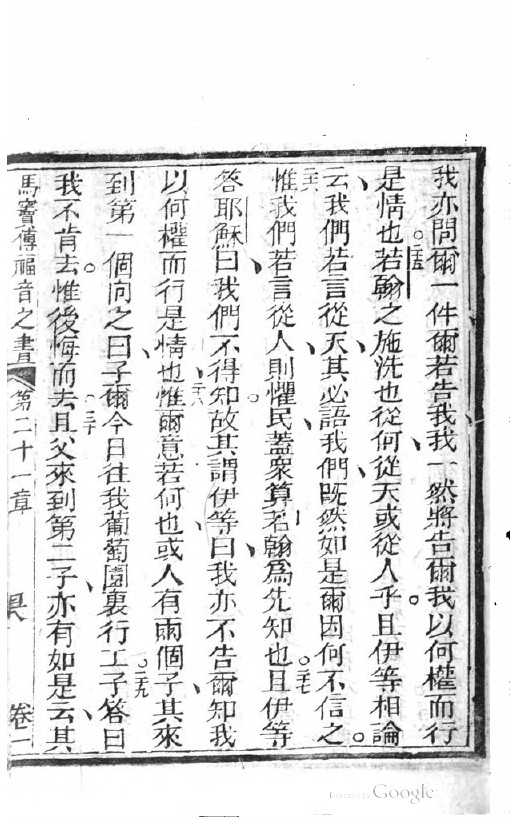 我亦問爾一件爾若告我我一然將告爾我以何權而行
是情也。二五若翰之施洗也從何從天或從人乎。且伊等相論
云我們若言從天其必語我們既然如是爾因何不信之。
二六惟我們若言從人則懼民蓋衆算若翰為先知也。二七且伊等
答耶穌曰我們不得知。故其謂伊等曰我亦不告爾知我
以何權而行是情也。二八惟爾意若何也或人有兩個子其來
到第一個向之曰子爾今日往我葡萄園裏行工。二九子答曰
我不肯去。惟後悔而去。三十且父來到第二子亦有如是云其
馬竇傳福音之書 第二十一章 卷一
Digitized by Google